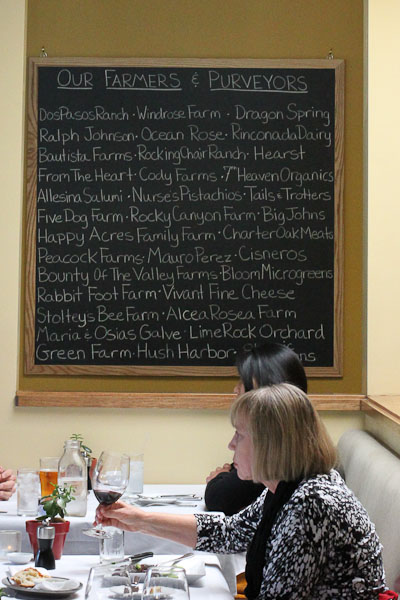 OUR FARMERS & PURVEYORS
DosPasosRanch · Windrose Farm · Dragon Spring
Ralph Johnson · Ocean Rose · Rinconada Dairy
Bautista Farms · Rocking Chair Ranch · Hearst
From The Heart · Cody Farms · 7th Heaven Organics
Allesina Salumi · Nurse's Pistachios · Tails & Trotters
Five Dog Farm · Rocky Canyon Farm · Big Johns
Happy Acres Family Farm · Charter Oak Meats
Peacock Farms · Mauro Perez · Cisneros
Bounty Of The Valley Farms · Bloom Microgreens
Rabbit Foot Farm · Vivant Fine Cheese
Stolteys Bee Farm · Alcea Rosea Farm
Maria & Osias Galve · Lime Rock Orchard
Green Farm · Hush Harbor ·